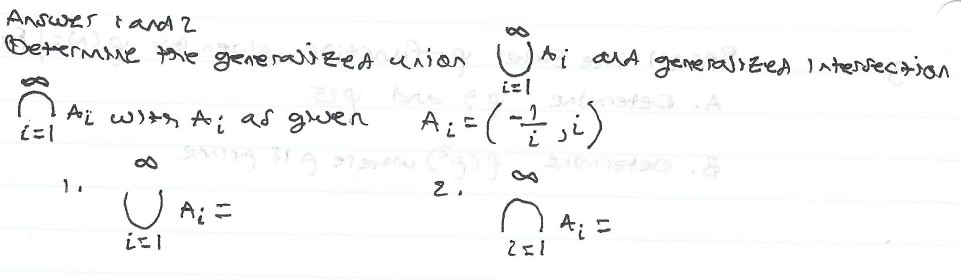 Answer 1 and 2
Determine the generalized union ⋃_{i=1}^{∞} A_i and generalized intersection
⋂_{i=1}^{∞} A_i with A_i as given A_i = (-1/i, i)
1. ⋃_{i=1}^{∞} A_i = 2. ⋂_{i=1}^{∞} A_i =